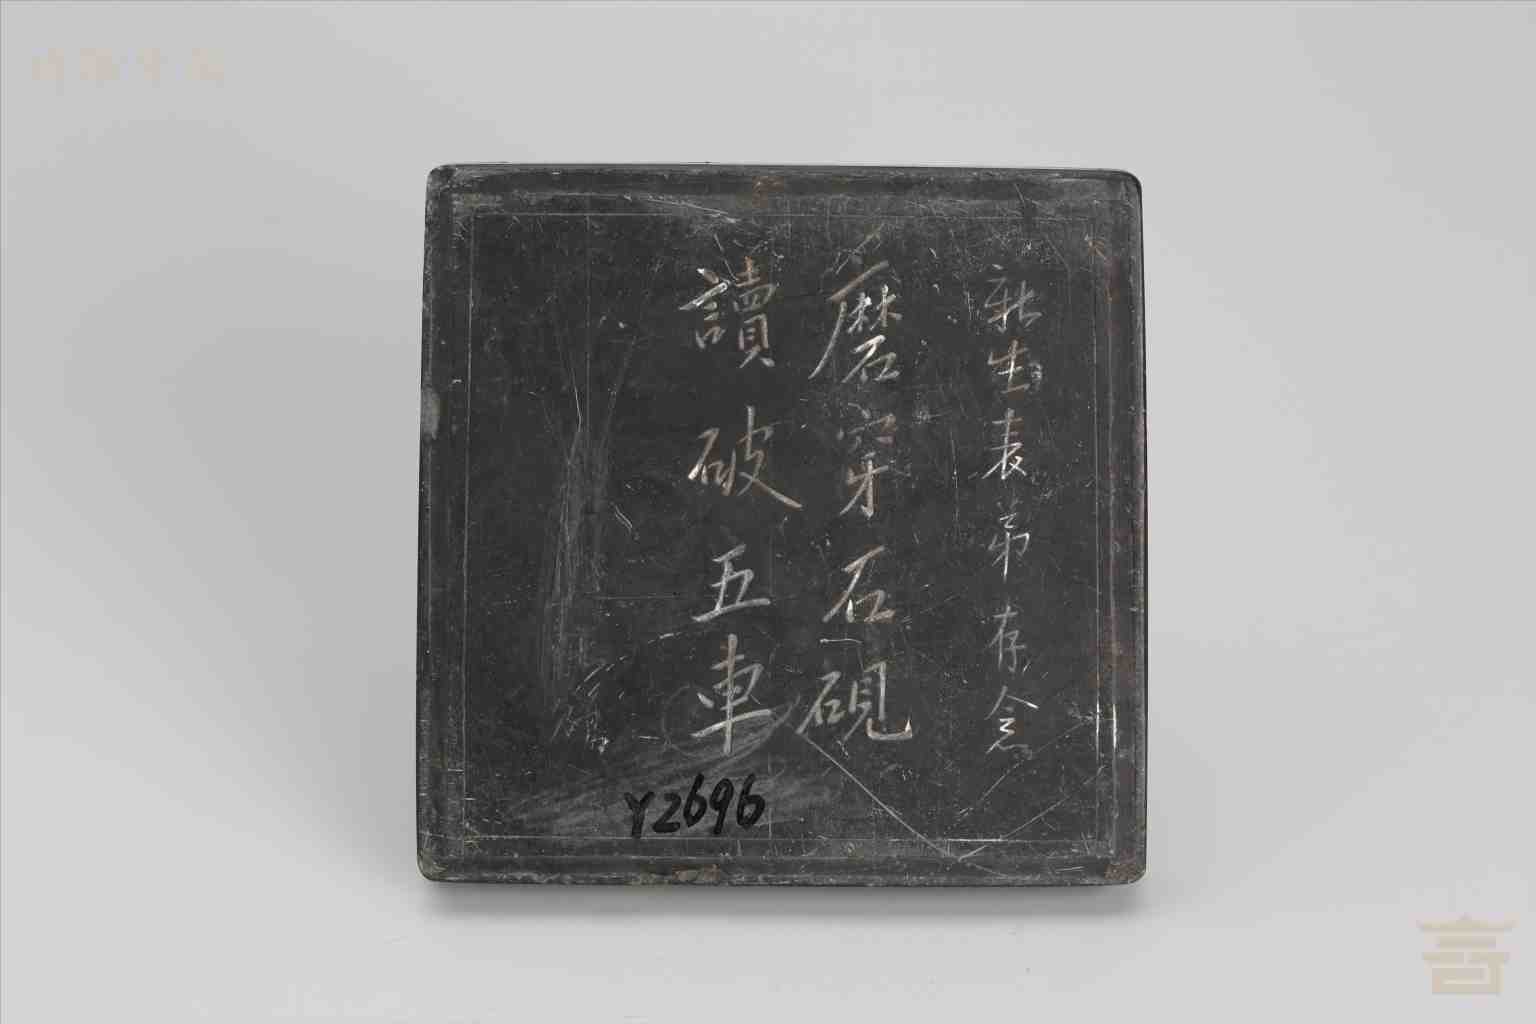 新生表弟存念
磨穿石硯
讀破五車
Y2696